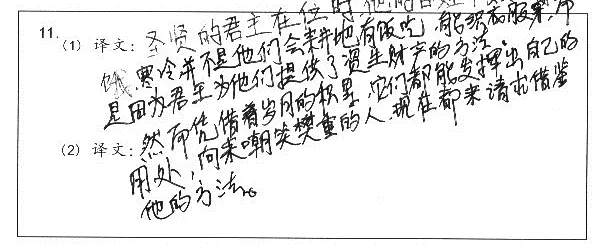 11.
(1) 译文：圣贤的君主在位时，他的百姓不
饿、寒冷并不是他们会耕地有饭吃，能织衣服来
是因为君主为他们提供了资生财产的方法
(2) 译文：然而凭借着岁月的积累，它们都能发挥出自己的
用处，向来嘲笑樊重的人，现在都来请求借鉴
他的方法。